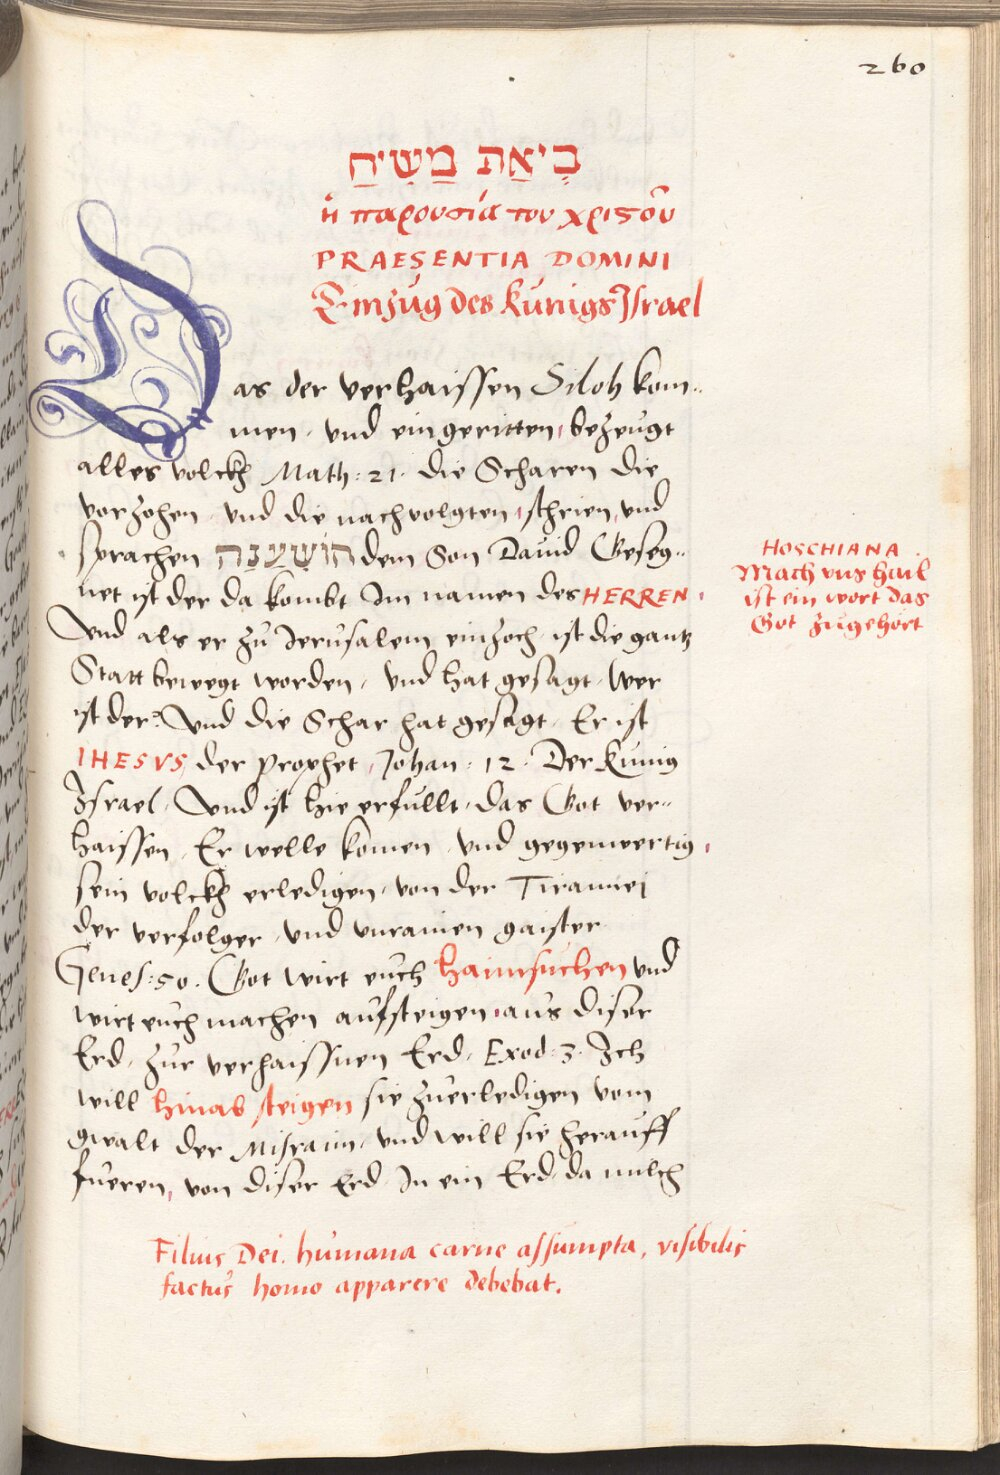 260
בִיאַת מַשִׁיחַ
ἡ παρουσία του χριϛοῦ
PRAESENTIA DOMINI
Einzug des Kunigs Israel
Das der verhaissen Siloh kom-
men, und eingeritten, bezeugt
alles volckh Math: 21. die Scharen die
vorzohen, und die nachvolgten, schrien, und
sprachen הוֹשַׁעֲנַה dem Son David Geseg-
net ist der da kombt Im namen des HERREN.
Und als er zu Jerusalem einzoch, ist die gantz
Statt bewegt worden, und hat gesagt, Wer
ist der? Und die Schar hat gesagt, Er ist
IHESVS, der prophet, Johan. 12. Der Kunig
Israel. Und ist hie erfullt, das Got ver-
haissen, Er welle komen, und gegenwertig,
sein volckh erledigen, von der Tirannei
der verfolger, und unrainen gaister.
Genes: 50. Got wirt euch haimsuchen und
wirt euch machen aufsteigen, aus diser
Erd, zur verhaissnen Erd, Exod: 3. Ich
will hinab steigen sie zuerledigen vom
gwalt der Misraim, und will sie herauff
fueren, von diser Erd, In ein Erd, da milch
HOSCHIANA
Mach uns hail
ist ein wort das
Got zugehört
Filius Dei, humana carne assumpta, visibilis
factus homo apparere debebat.